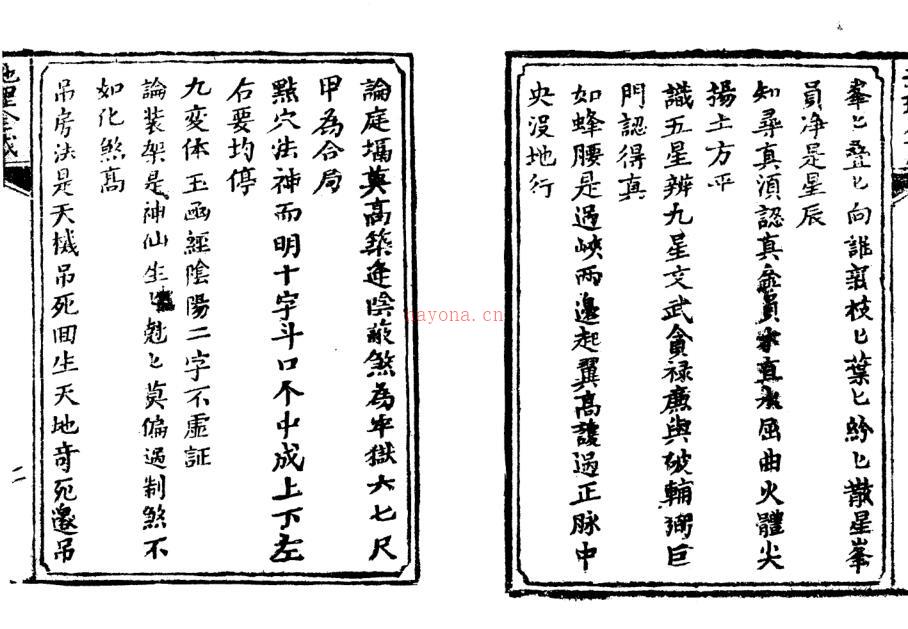 峯匕疊匕向誰習枝匕葉匕紛匕散星峯
員净是星辰
知尋真湏認真金員水直木屈曲火體尖
揚土方平
識五星辨九星文武貪禄廉與破輔弼巨
門認得真
如蜂腰是過峽兩邊起翼高護過正脉中
央没地行
論庭堛莫高築逢陰蔽煞為牢獄六七尺
甲為合局
點穴法神而明十字斗口不中成上下左
右要均停
九变体玉函經陰陽二字不虛証
論装架是神仙生匕尅匕莫偏過制煞不
如化煞高
吊房法是天機吊死回生天地竒死還吊
地理全
二
gayona.cn